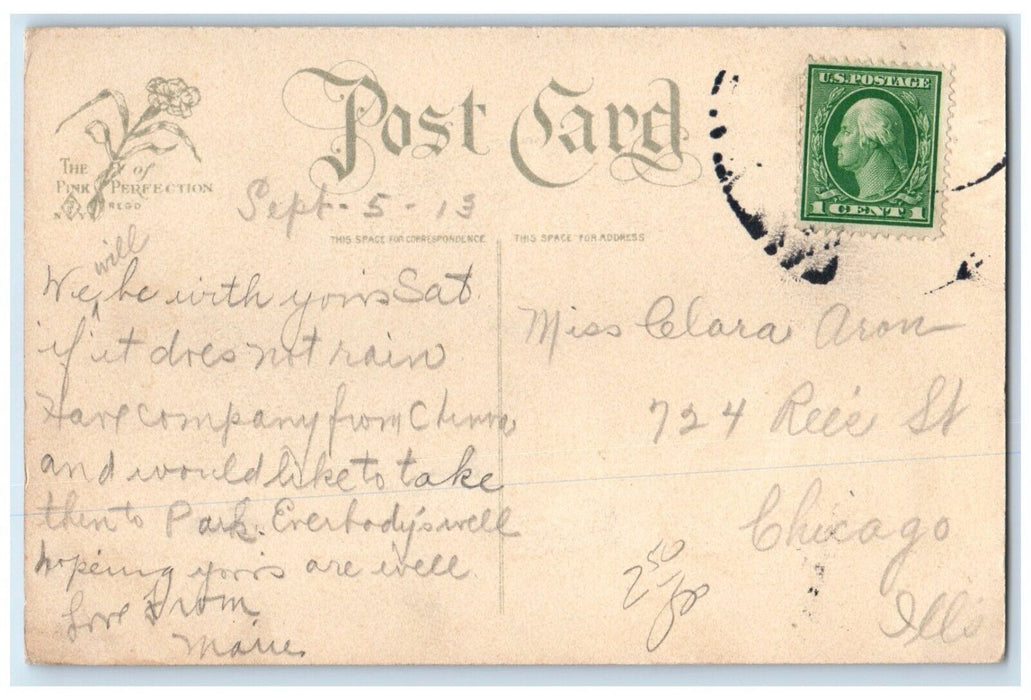 Post Card
U.S. POSTAGE
1 CENT 1
THE of
PINK PERFECTION
REGD
Sept - 5 - 13
THIS SPACE FOR CORRESPONDENCE
THIS SPACE FOR ADDRESS
will
We be with yours Sat
if it does not rain
Have company from
and would like to take
them to Park. Everbody's well
hopeing yours are well
Love From
Marie
Miss Clara Aron
724 St
Chicago
Ills
2 50